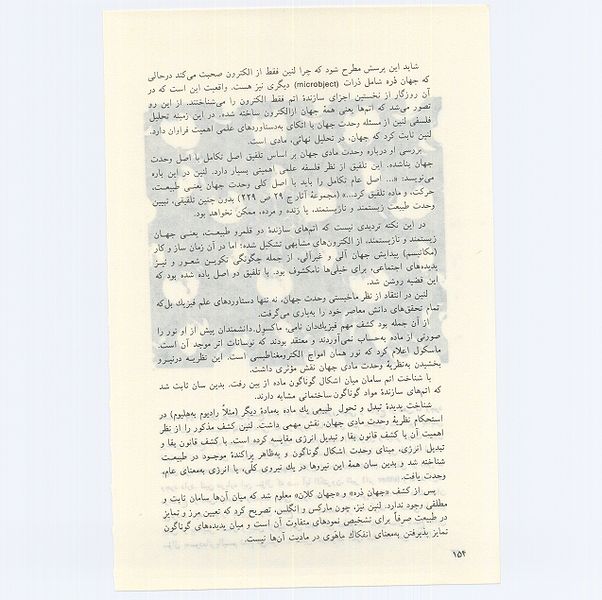 شاید این پرسش مطرح شود که چرا لنین فقط از الکترون صحبت می‌کند درحالی
که جهان ذره شامل ذرات (microbject) دیگری نیز هست. واقعیت این است که در
آن روزگار از نخستین اجزای سازندهٔ اتم فقط الکترون را می‌شناختند. از این رو
تصور می‌شد که اتم‌ها یعنی همهٔ جهان ازالکترون ساخته شده. در این زمینه تحلیل
فلسفی لنین از مسئله وحدت جهان با اتکای به‌دستاوردهای علمی اهمیت فراوان دارد.
لنین ثابت کرد که جهان، در تحلیل نهائی، مادی است.
بررسی او درباره وحدت مادی جهان بر اساس تلفیق اصل تکامل با اصل وحدت
جهان بناشده. این تلفیق از نظر فلسفه علمی اهمیتی بسیار دارد. لنین در این باره
می‌نویسد: «... اصل عام تکامل را باید با اصل کلی وحدت جهان یعنی طبیعت،
حرکت، و ماده تلفیق کرد...» (مجموعهٔ آثار ج ۲۹ ص ۲۲۹) بدون چنین تلفیقی، تبیین
وحدت طبیعت زیستمند و نازیستمند، یا زنده و مرده، ممکن نخواهد بود.
در این نکته تردیدی نیست که اتم‌های سازندهٔ دو قلمرو طبیعت، یعنی جهان
زیستمند و نازیستمند، از الکترون‌های مشابهی تشکیل شده؛ اما در آن زمان ساز و کار
(مکانیسم) پیدایش جهان آلی و غیرآلی، از جمله چگونگی تکوین شعور و نیز
پدیده‌های اجتماعی، برای خیلی‌ها نامکشوف بود. با تلفیق دو اصل یاده شده بود که
این قضیه روشن شد.
لنین در انتقاد از نظر ماخیستی وحدت جهان، نه تنها دستاوردهای علم فیزیك بل‌که
تمام تحقق‌های دانش معاصر خود را به‌یاری می‌گرفت.
از آن جمله بود کشف مهم فیزیك‌دان نامی، ماکسول. دانشمندان پیش از او نور را
صورتی از ماده به‌حساب نمی‌آوردند و معتقد بودند که نوسانات اتر موجد آن است.
ماسکول اعلام کرد که نور همان امواج الکترومغناطیسی است. این نظریه درنیرو
بخشیدن به‌نظریهٔ وحدت مادی جهان نقش مؤثری داشت.
با شناخت اتم سامان میان اشکال گوناگون ماده از بین رفت. بدین سان ثابت شد
که اتم‌های سازندهٔ مواد گوناگون ساختمانی مشابه دارند.
شناخت پدیدهٔ تبدل و تحول طبیعی یك ماده به‌مادهٔ دیگر (مثلاً رادیوم به‌هلیوم) در
استحکام نظریهٔ وحدت مادی جهان، نقش مهمی داشت. لنین کشف مذکور را از نظر
اهمیت آن با کشف قانون بقا و تبدیل انرژی مقایسه کرده است. با کشف قانون بقا و
تبدیل انرژی، مبنای وحدت اشکال گوناگون و به‌ظاهر پراکندهٔ موجود در طبیعت
شناخته شد و بدین سان همهٔ این نیروها در یك نیروی کلی، یا انرژی به‌معنای عام،
وحدت یافت.
پس از کشف «جهان ذره» و «جهان کلان» معلوم شد که میان آن‌ها سامان ثابت و
مطلقی وجود ندارد. لنین نیز، چون مارکس و انگلس، تصریح کرد که تعیین مرز و تمایز
در طبیعت صرفاً برای تشخیص نمودهای متفاوت آن است و میان پدیده‌های گوناگون
تمایز پذیرفتن به‌معنای انفکاك ماهوی در مادیت آن‌ها نیست.
۱۵۴